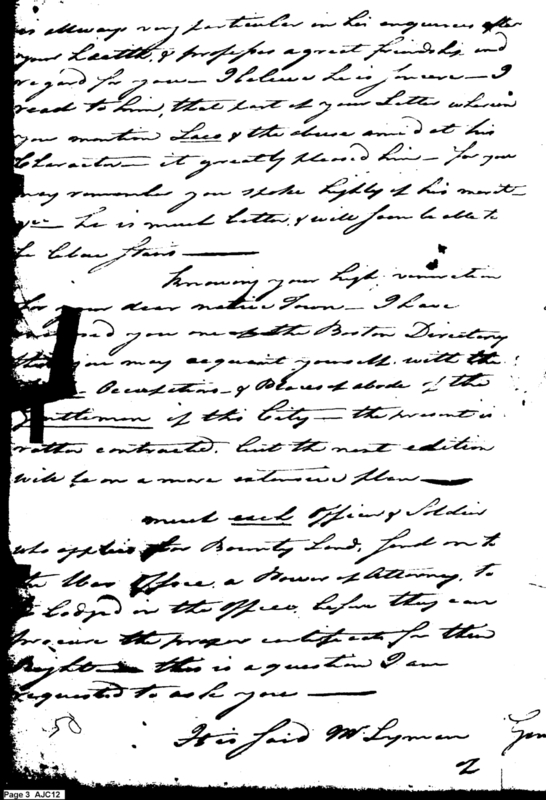 is allways very particular in his enquiries after
your health, & professes a great friendship and
regard for you — I believe he is sincere — I
read to him, that part of your Letter wherein
you mention Laco & the abuse aimed at his
Character — it greatly pleased him — for you
may remember you spoke highly of his merit
he is much better, & will soon be able to
be below Stairs —
Knowing your high veneration
for your dear native Town — I have
you one of the Boston Directory
that you may acquaint yourself with the
Occupations & Places of abode of the
Gentlemen of this City — the present is
rather contracted, but the next edition
will be on a more extensive plan —
must each Officer & Soldier
who applies for Bounty Land, send on to
the War Office, a Power of Attorney, to
be lodged in the Office, before they can
procure the proper certificate for their
Right — this is a question I am
requested to ask you —
It is said Mr Lyman
50
2
Page 3 AJC12